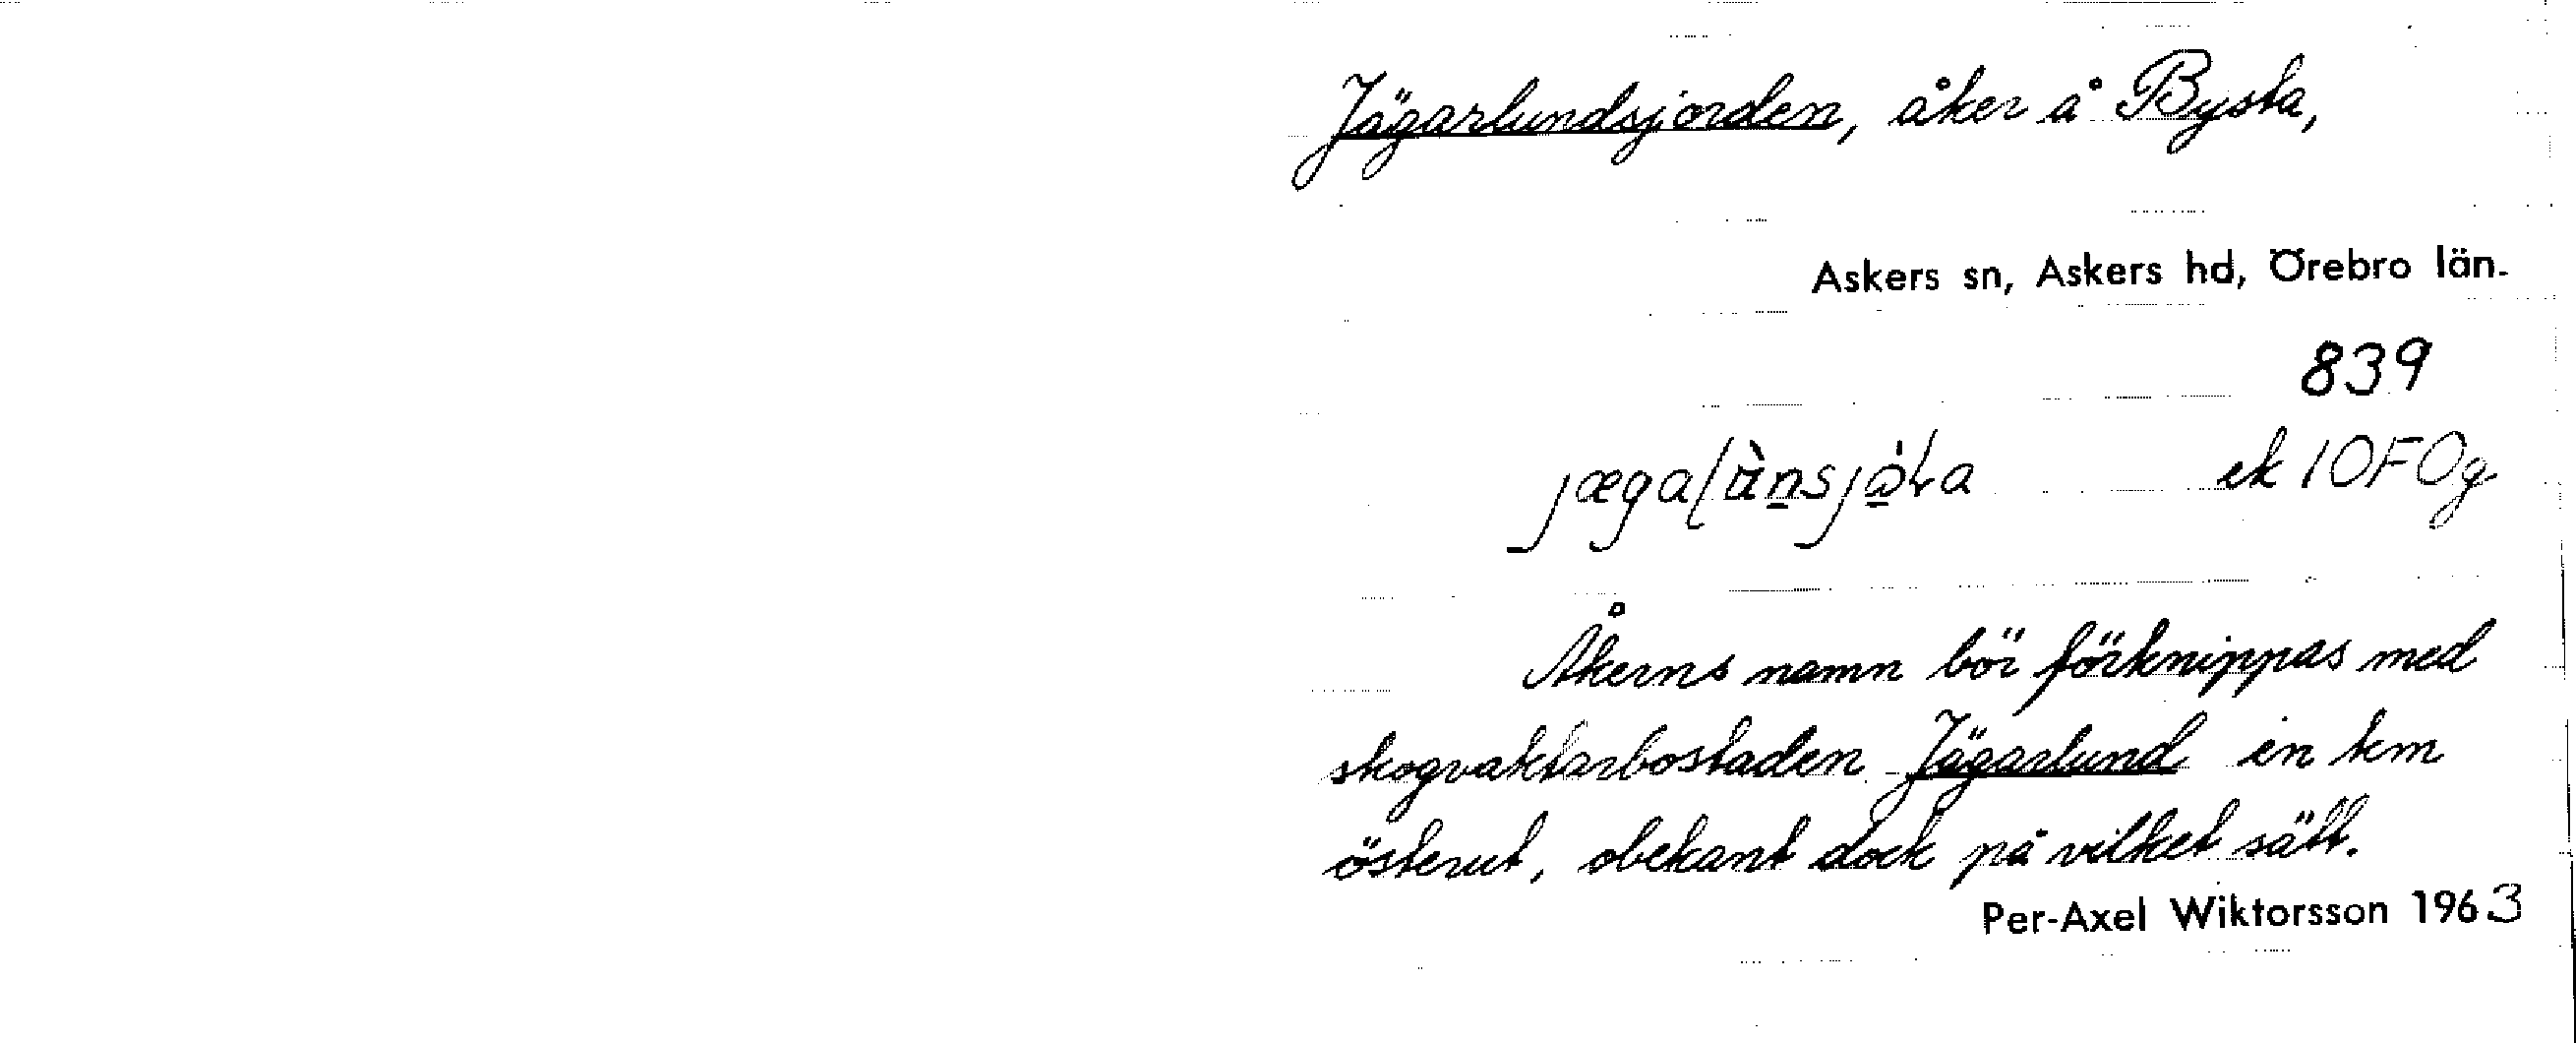 Jägarlundsjorden, åker å Bysta,
Askers sn, Askers hd, Örebro län.
839
ek 10F0g
Åkerns namn bör förknippas med
skogvaktarbostaden Jägarlund en km
österut, obekant dock på vilket sätt.
Per-Axel Wiktorsson 1963